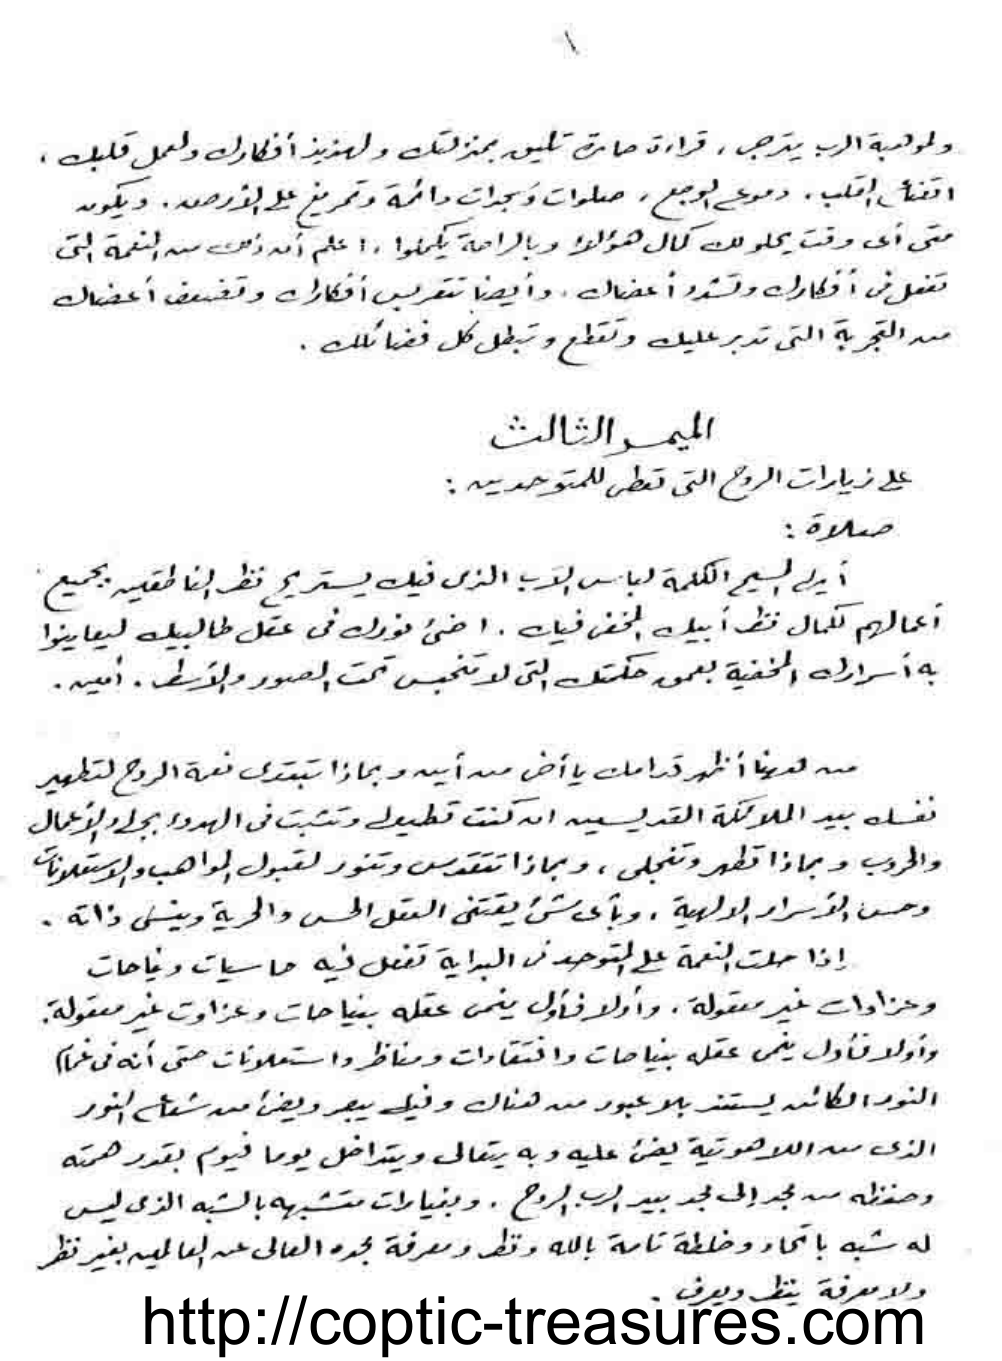 ١
ولموهبة الرب يترجى ، قراءة حارة تليق بمنزلتك ولهذيذ أفكارك ولعمل قلبك ،
اتضاع القلب . دموع الوجع ، صلوات وسجدات دائمة وتمريغ على الأرض . ويكون
متى أى وقت يحلو لك كمال هؤلاء وبالراحة يكملوا ، اعلم أن ذلك من النعمة التى
تفعل فى أفكارك وتشدد أعضاك . وأيضا تتقريس أفكارك وتضعف أعضاك
من التجربة التى تدبر عليك وتقطع وتبطل كل فضائلك .
الميمر الثالث
على زيارات الروح التى تعطى للمتوحدين :
صلاة :
أيها المسيح الكلمة لباس الآب الذى فيك يستريح نظر الناطقين بجميع
أعمالهم لكمال نظر أبيك المخفى فيك . اضئ نورك فى عقل طالبيك ليعاينوا
به أسرارك المخفية بعمق حكمتك التى لا تنحبس تحت الصور والأسطر . أمين .
من ههنا أظهر قدامك يا أخى من أين وبماذا تبتدى نعمة الروح لتطهير
نفسك بيد الملائكة القديسين ان كنت تطيعها وتثبت فى الهدوء بحلو الأعمال
والحروب وبماذا تطهر وتنجلى ، وبماذا تتقدس وتنور لقبول المواهب والاستعلانات
وحس الأسرار الالهية ، وبأى شئ يقتنى العقل الحس والحرية وينسى ذاته .
إذا حلت النعمة على المتوحد فى البداية تفعل فيه حاسيات ونياحات
وعزاوات غير معقولة ، وأولا فأول ينمى عقله بنياحات وعزاوت غير معقولة .
وأولا فأول ينمى عقله بنياحات وافتقادات ومناظر واستعلانات حتى أنه فى غمام
النور الكائن يستند بلا عبور من هناك وفيها يبصر ويضئ من شعاع النور
الذى من اللاهوتية يضئ عليه وبه يتعالى ويتداخل يوما فيوم بقدر همته
وحفظه من مجد إلى مجد بيد الرب الروح . وبغيارات متشبهه بالشبه الذى ليس
له شبه باتحاد وخلطة تامة بالله ونظر ومعرفة مجده العالى عن العالمين بغير نظر
ولا معرفة ينظر ويعرف .
http://coptic-treasures.com